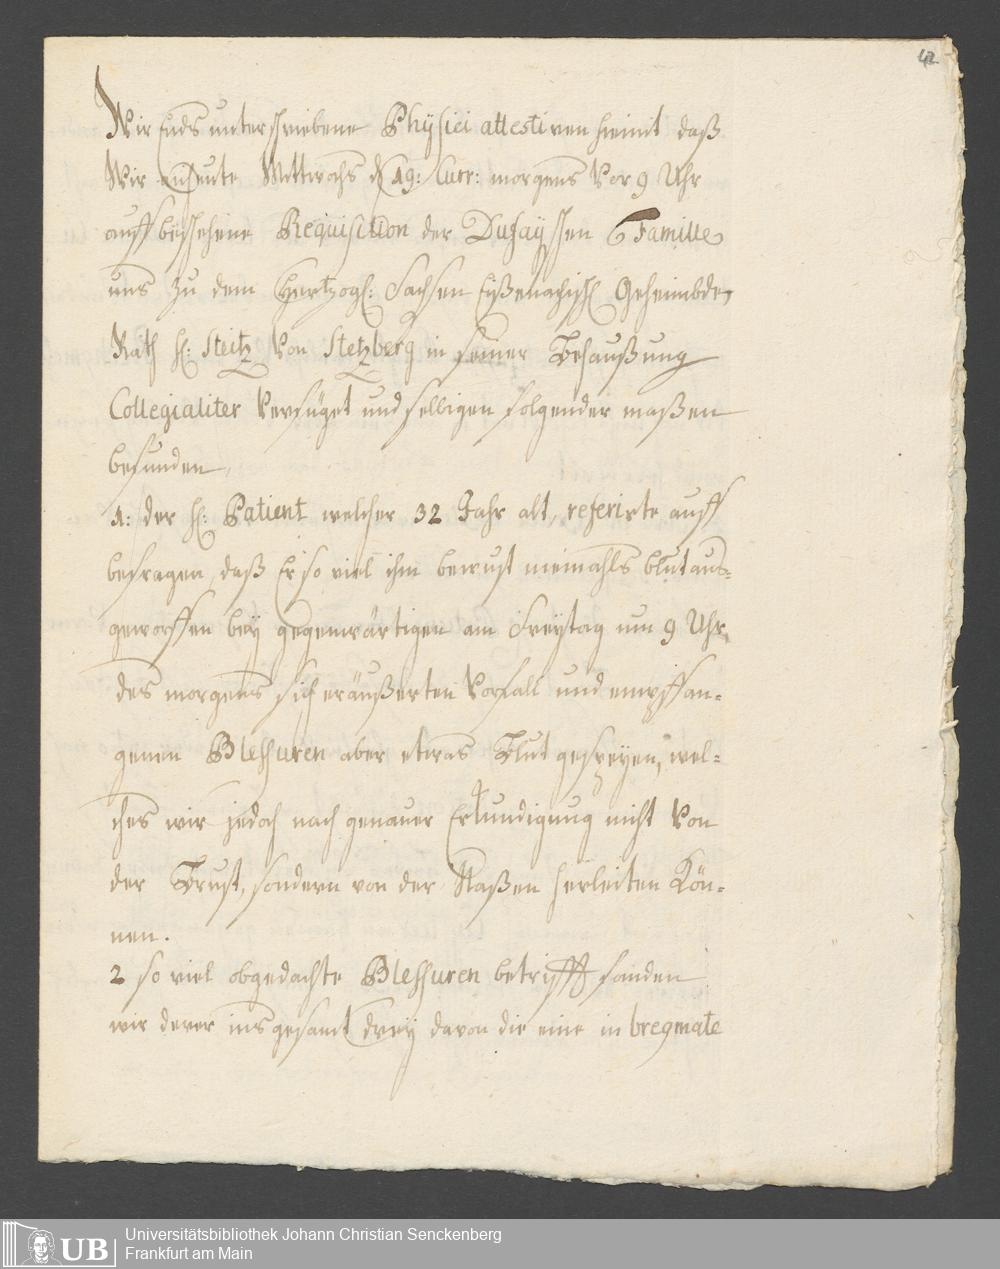 42
Wir Ends unterschriebene Physici attestiren hiemit daß
Wir anheute Mittwochs d 19: Curr: morgens Vor 9 Uhr
auff beschehene Requisition der Dufayssen Famille
uns zu dem Hertzogl: Sachsen Eißenachisch Geheimbde,
Rath H: Steitz Von Stetzberg in seiner Behaußung
Collegialiter Verfüget und selbigen folgender maßen
befunden,
1: der H: Patient welcher 32 Jahr alt, referirte auff
befragen, daß Er so viel ihm bewust niemahls blut aus-
geworffen bey gegenwärtigen am Freytag um 9 Uhr,
des morgens sich eräußerten Vorfall und empffan-
genen Blessuren aber etwas Blut gespeyen, wel-
ches wir jedoch nach genauer Erkundigung nicht Von
der Brust, sondern von der Naßen herleiten Kön-
nen.
2 so viel obgedachte Blessuren betrifft fanden
wir derer ins gesamt drey davon die eine in bregmate
UB
Universitätsbibliothek Johann Christian Senckenberg
Frankfurt am Main